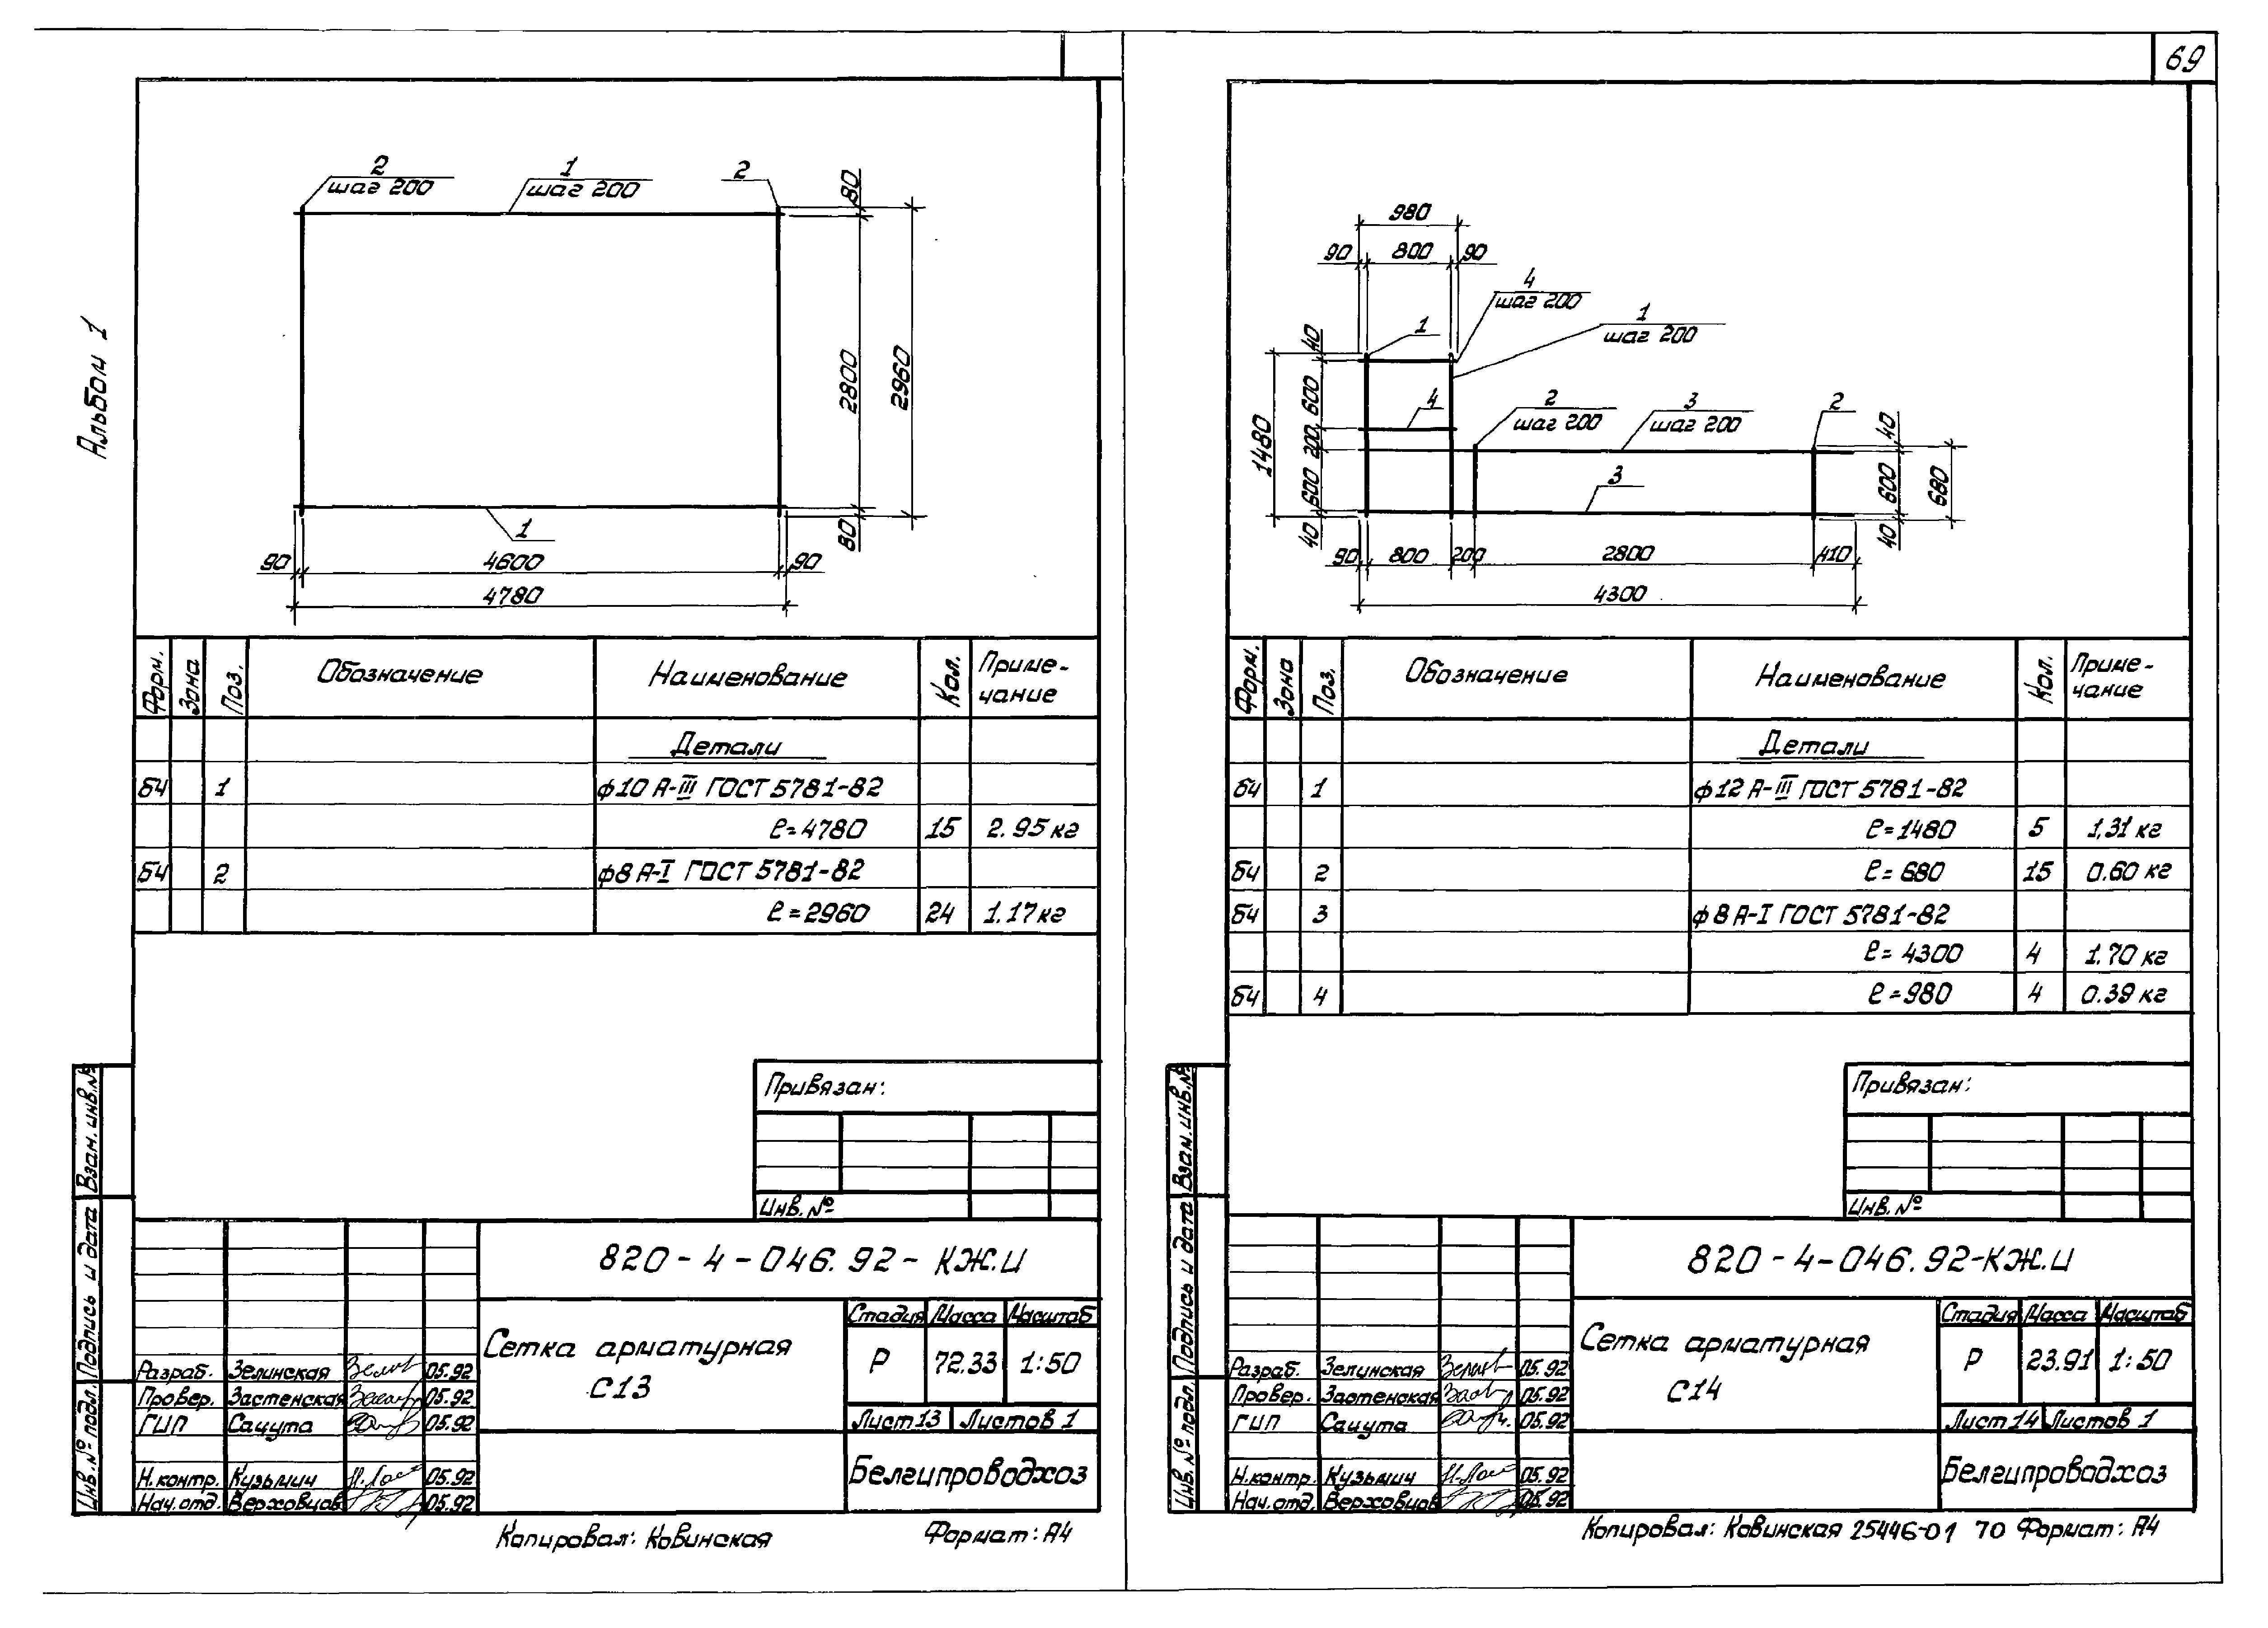 69
Альбом 1
2
шаг 200
1
шаг 200
2
80
2800
2960
80
1
90
4600
90
4780
Форм.
Зона
Поз.
Обозначение
Наименование
Кол.
Приме-
чание
Детали
БЧ 1 ф10 А-III ГОСТ 5781-82
ℓ=4780 15 2.95 кг
БЧ 2 ф8 А-I ГОСТ 5781-82
ℓ=2960 24 1.17 кг
Привязан:
Инв. №
820-4-046.92-КЖ.И
Сетка арматурная
С13
Стадия Масса Масштаб
Р 72.33 1:50
Лист 13 Листов 1
Белгипроводхоз
Разраб. Зелинская 05.92
Провер. Застенская 05.92
ГИП Сацута 05.92
Н.контр. Кузьмич 05.92
Нач.отд. Верховцов 05.92
Взам.инв.№
Подпись и дата
Инв.№ подл.
Копировал: Ковинская Формат: А4
980
90
800
90
4
шаг 200
1
1
шаг 200
40
600
200
600
40
1480
4
2
шаг 200
3
шаг 200
2
3
40
600
40
680
90
800
200
2800
410
4300
Форм.
Зона
Поз.
Обозначение
Наименование
Кол.
Приме-
чание
Детали
БЧ 1 ф12 А-III ГОСТ 5781-82
ℓ=1480 5 1,31 кг
БЧ 2 ℓ=680 15 0.60 кг
БЧ 3 ф8 А-I ГОСТ 5781-82
ℓ=4300 4 1.70 кг
БЧ 4 ℓ=980 4 0.39 кг
Привязан:
Инв. №
820-4-046.92-КЖ.И
Сетка арматурная
С14
Стадия Масса Масштаб
Р 23.91 1:50
Лист 14 Листов 1
Белгипроводхоз
Разраб. Зелинская 05.92
Провер. Застенская 05.92
ГИП Сацута 05.92
Н.контр. Кузьмич 05.92
Нач.отд. Верховцов 05.92
Взам.инв.№
Подпись и дата
Инв.№ подл.
Копировал: Ковинская 25446-01 70 Формат: А4